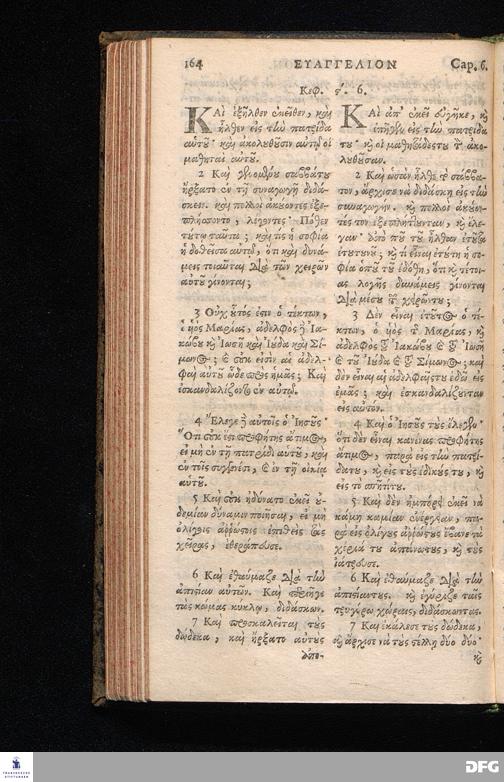 164 ΕΥΑΓΓΕΛΙΟΝ Cap. 6.
Κεφ. ϛʹ. 6.
ΚΑὶ ἐξῆλθεν ἐκεῖθεν, καὶ
ἦλθεν εἰς τὴν πατρίδα
αὑτοῦ· καὶ ἀκολουθοῦσιν αὐτῷ οἱ
μαθηταὶ αὐτοῦ.
2 Καὶ γενομένου σαββάτου
ἤρξατο ἐν τῇ συναγωγῇ διδά-
σκειν. καὶ πολλοὶ ἀκούοντες ἐξε-
πλήσσοντο, λέγοντες· Πόθεν
τούτῳ ταῦτα; καὶ τίς ἡ σοφία
ἡ δοθεῖσα αὐτῷ, ὅτι καὶ δυνά-
μεις τοιαῦται διὰ τῶν χειρῶν
αὐτοῦ γίνονται;
3 Οὐχ οὗτός ἐστιν ὁ τέκτων,
ὁ υἱὸς Μαρίας, ἀδελφὸς δὲ Ἰα-
κώβου καὶ Ἰωσῆ καὶ Ἰούδα καὶ Σί-
μωνος; καὶ οὐκ εἰσὶν αἱ ἀδελ-
φαὶ αὐτοῦ ὧδε πρὸς ἡμᾶς; Καὶ
ἐσκανδαλίζοντο ἐν αὐτῷ.
4 Ἔλεγε δὲ αὐτοῖς ὁ Ἰησοῦς·
Ὅτι οὐκ ἔστι προφήτης ἄτιμος,
εἰ μὴ ἐν τῇ πατρίδι αὑτοῦ, καὶ
ἐν τοῖς συγγενέσι, καὶ ἐν τῇ οἰκίᾳ
αὑτοῦ.
5 Καὶ οὐκ ἠδύνατο ἐκεῖ οὐ-
δεμίαν δύναμιν ποιῆσαι, εἰ μὴ
ὀλίγοις ἀῤῥώστοις ἐπιθεὶς τὰς
χεῖρας, ἐθεράπευσε.
6 Καὶ ἐθαύμαζε διὰ τὴν
ἀπιστίαν αὐτῶν. Καὶ περιῆγε
τὰς κώμας κύκλῳ, διδάσκων.
7 Καὶ προσκαλεῖται τοὺς
δώδεκα, καὶ ἤρξατο αὐτοὺς
ΚΑὶ ἀπ' ἐκεῖ εὐγῆκε, καὶ
ἐπῆγεν εἰς τὴν πατρίδα
του· καὶ οἱ μαθηταίδες του τὸν ἀκο-
λουθοῦσαν.
2 Καὶ ὡσὰν ἦλθε τὸ σάββα-
τον, ἄρχισε νὰ διδάσκῃ εἰς τὴν
συναγωγήν. καὶ πολλοὶ ἀκούον-
τές τον ἐξεπλήττονταν, καὶ ἔλε-
γαν· ἀπὸ ποῦ τοῦ ἦλθαν ἐτοῦτα
ἐτουτουνοῦ; καὶ τί εἶναι ἐτούτη ἡ σο-
φία ὁποῦ τοῦ ἐδόθη, ὅτι καὶ τέτοι-
ας λογῆς δυνάμεις γίνονται
διὰ μέσου τῶν χερῶν του;
3 Δὲν εἶναι ἐτοῦτος ὁ τέ-
κτων, ὁ υἱὸς τῆς Μαρίας, καὶ
ἀδελφὸς τοῦ Ἰακώβου καὶ τοῦ Ἰωσῆ
καὶ τοῦ Ἰούδα καὶ τοῦ Σίμωνος; καὶ
δὲν εἶναι αἱ ἀδελφαῖς του ἐδῶ εἰς
ἐμᾶς; καὶ ἐσκανδαλίζονταν
εἰς αὐτόν.
4 Καὶ ὁ Ἰησοῦς τοὺς ἔλεγεν·
ὅτι δὲν εἶναι κανένας προφήτης
ἄτιμος, παρὰ εἰς τὴν πατρί-
δα του, καὶ εἰς τοὺς ἰδικούς του, καὶ
εἰς τὸ σπῆτί του.
5 Καὶ δὲν ἠμπόρει ἐκεῖ νὰ
κάμῃ καμίαν ἐνέργειαν, πα-
ρὰ εἰς ὀλίγους ἀῤῥώστους ἔβανε τὰ
χέριά του ἀπάνωτους, καὶ τοὺς
ἰάτρευσε.
6 Καὶ ἐθαύμαζε διὰ τὴν
ἀπιστίαν τους. καὶ ἐγύριζε ταῖς
τριγύρω χώραις, διδάσκωντας.
7 Καὶ ἐκάλεσε τοὺς δώδεκα,
καὶ ἄρχισε νὰ τοὺς στέλλῃ δύο δύο·
ἀπο-
καὶ
FRANCKESCHE
STIFTUNGEN
DFG